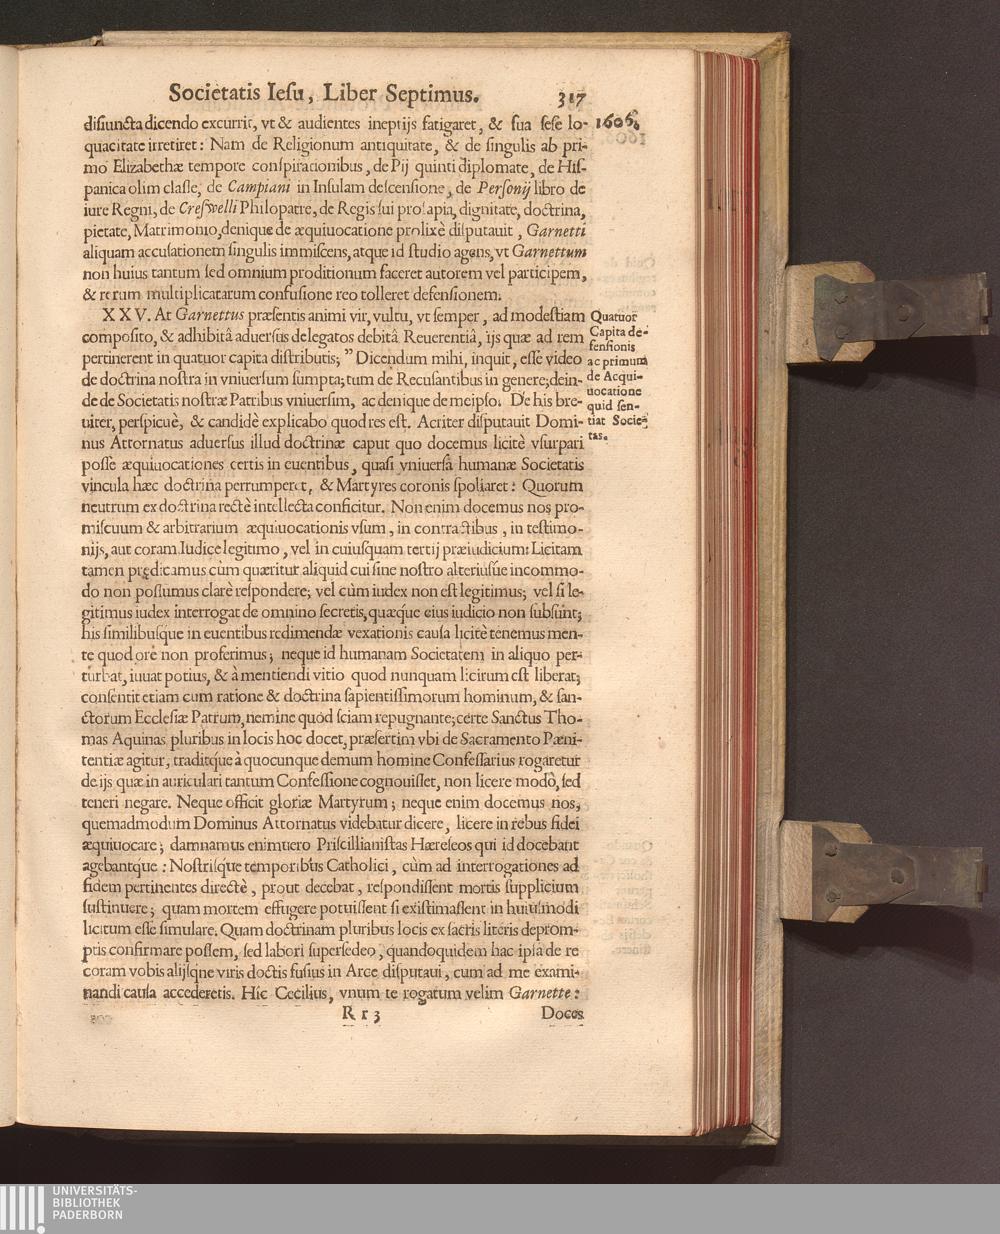 Societatis Iesu, Liber Septimus. 317
disiuncta dicendo excurrit, vt & audientes ineptijs fatigaret, & sua sese lo- 1606.
quacitate irretiret: Nam de Religionum antiquitate, & de singulis ab pri-
mo Elizabethæ tempore conspirationibus, de Pij quinti diplomate, de His-
panica olim classe, de Campiani in Insulam descensione, de Personij libro de
iure Regni, de Creswelli Philopatre, de Regis sui prosapia, dignitate, doctrina,
pietate, Matrimonio, denique de æquiuocatione prolixè disputauit, Garnetti
aliquam accusationem singulis immiscens, atque id studio agens, vt Garnettum
non huius tantum sed omnium proditionum faceret autorem vel participem,
& rerum multiplicatarum confusione reo tolleret defensionem.
XXV. At Garnettus præsentis animi vir, vultu, vt semper, ad modestiam
composito, & adhibitâ aduersùs delegatos debitâ Reuerentiâ, ijs quæ ad rem
pertinerent in quatuor capita distributis; " Dicendum mihi, inquit, esse video
de doctrina nostra in vniuersum sumpta; tum de Recusantibus in genere; dein-
de de Societatis nostræ Patribus vniuersim, ac denique de meipso. De his bre-
uiter, perspicuè, & candidè explicabo quod res est. Acriter disputauit Domi-
nus Attornatus aduersus illud doctrinæ caput quo docemus licitè vsurpari
posse æquiuocationes certis in euentibus, quasi vniuersâ humanæ Societatis
vincula hæc doctrina perrumperet, & Martyres coronis spoliaret: Quorum
neutrum ex doctrina rectè intellecta conficitur. Non enim docemus nos pro-
miscuum & arbitrarium æquiuocationis vsum, in contractibus, in testimo-
nijs, aut coram Iudice legitimo, vel in cuiusquam tertij præiudicium: Licitam
tamen prędicamus cùm quæritur aliquid cui sine nostro alteriusue incommo-
do non possumus clarè respondere; vel cùm iudex non est legitimus; vel si le-
gitimus iudex interrogat de omnino secretis, quæque eius iudicio non subsunt;
his similibusque in euentibus redimendæ vexationis causa licitè tenemus men-
te quod ore non proferimus; neque id humanam Societatem in aliquo per-
turbat, iuuat potius, & à mentiendi vitio quod nunquam licitum est liberat;
consentit etiam cum ratione & doctrina sapientissimorum hominum, & san-
ctorum Ecclesiæ Patrum, nemine quod sciam repugnante; certe Sanctus Tho-
mas Aquinas pluribus in locis hoc docet, præsertim vbi de Sacramento Pæni-
tentiæ agitur, traditque à quocunque demum homine Confessarius rogaretur
de ijs quæ in auriculari tantum Confessione cognouisset, non licere modò, sed
teneri negare. Neque officit gloriæ Martyrum; neque enim docemus nos,
quemadmodum Dominus Attornatus videbatur dicere, licere in rebus fidei
æquiuocare; damnamus enimuero Priscillianistas Hæreseos qui id docebant
agebantque: Nostrisque temporibus Catholici, cùm ad interrogationes ad
fidem pertinentes directè, prout decebat, respondissent mortis supplicium
sustinuere; quam mortem effugere potuissent si existimassent in huiusmodi
licitum esse simulare. Quam doctrinam pluribus locis ex sacris literis deprom-
ptis confirmare possem, sed labori supersedeo, quandoquidem hac ipsa de re
coram vobis alijsque viris doctis fusius in Arce disputaui, cum ad me exami-
nandi causa accederetis. Hic Cecilius, vnum te rogatum velim Garnette:
Rr3 Doces
Quatuor
Capita de-
fensionis
ac primum
de Acqui-
uocatione
quid sen-
tiat Socie-
tas.
UNIVERSITÄTS-
BIBLIOTHEK
PADERBORN